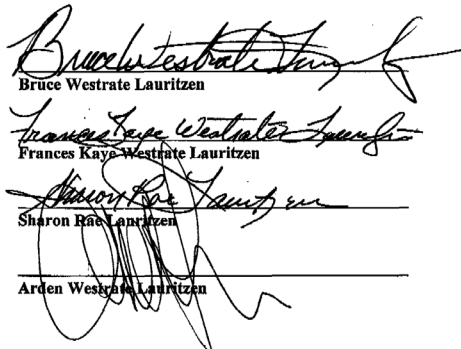 Bruce Westrate Lauritzen
Bruce Westrate Lauritzen
Frances Kaye Westrate Lauritzen
Frances Kaye Westrate Lauritzen
Sharon Rae Lauritzen
Sharon Rae Lauritzen
Arden Westrate Lauritzen